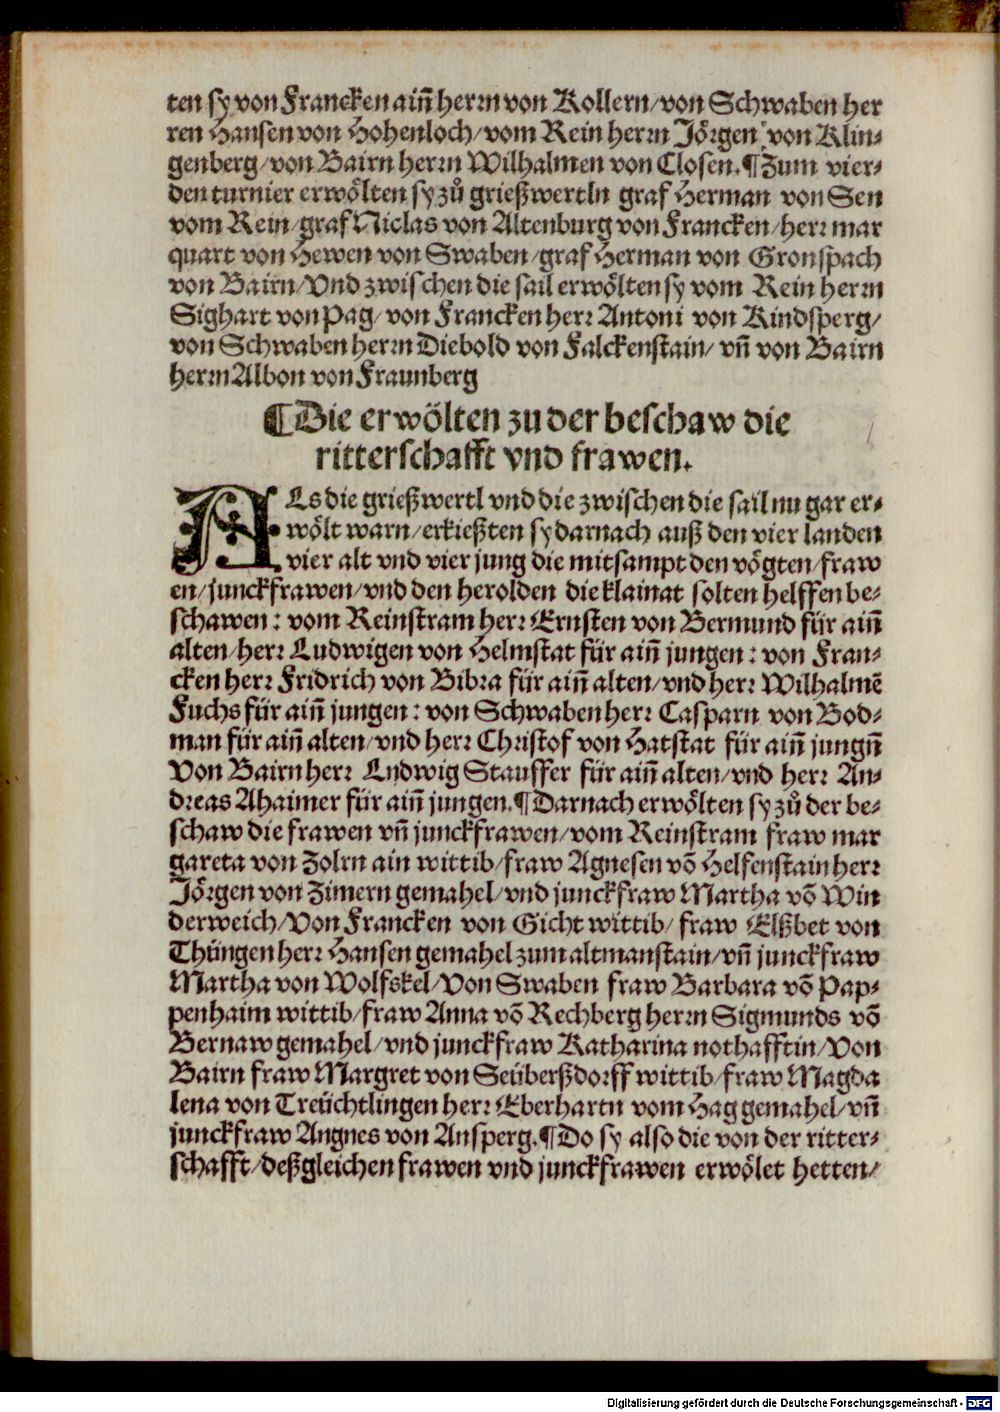 ten sy von Francken aiñ herrn von Kollern/von Schwaben her
ren Hansen von Hohenloch/vom Rein herrn Jörgen von Klin⸗
genberg/von Bairn herrn Wilhalmen von Closen.¶Zum vier⸗
den turnier erwölten sy zů grießwertln graf Herman von Sen
vom Rein/graf Niclas von Altenburg von Francken/herr mar
quart von Hewen von Swaben/graf Herman von Gronspach
von Bairn/Vnd zwischen die sail erwölten sy vom Rein herrn
Sighart von Pag/von Francken herr Antoni von Kindsperg/
von Schwaben herrn Diebold von Falckenstain/vñ von Bairn
herrn Albon von Fraunberg
¶Die erwölten zu der beschaw die
ritterschafft vnd frawen.
ALs die grießwertl vnd die zwischen die sail nu gar er⸗
wölt warn/erkießten sy darnach auß den vier landen
vier alt vnd vier jung die mitsampt den vögten/fraw
en/junckfrawen/vnd den herolden die klainat solten helffen be⸗
schawen: vom Reinstram herr Ernsten von Bermund für aiñ
alten/herr Ludwigen von Helmstat für aiñ jungen: von Fran⸗
cken herr Fridrich von Bibra für aiñ alten/vnd herr Wilhalmē
Fuchs für aiñ jungen: von Schwaben herr Casparn von Bod⸗
man für aiñ alten/vnd herr Christof von Hatstat für aiñ jungñ
Von Bairn herr Lndwig Stauffer für aiñ alten/vnd herr An⸗
dreas Ahaimer für aiñ jungen.¶Darnach erwölten sy zů der be⸗
schaw die frawen vñ junckfrawen/vom Reinstram fraw mar
gareta von Zolrn ain wittib/fraw Agnesen võ Helfenstain herr
Jörgen von Zimern gemahel/vnd junckfraw Martha võ Win
derweich/Von Francken von Gicht wittib/fraw Elßbet von
Thüngen herr Hansen gemahel zum altmanstain/vñ junckfraw
Martha von Wolfskel/Von Swaben fraw Barbara võ Pap⸗
penhaim wittib/fraw Anna võ Rechberg herrn Sigmunds võ
Bernaw gemahel/vnd junckfraw Katharina nothafftin/Von
Bairn fraw Margret von Seüberßdorff wittib/fraw Magda
lena von Treüchtlingen herr Eberhartn vom Hag gemahel/vñ
junckfraw Angnes von Ansperg.¶Do sy also die von der ritter⸗
schafft/deßgleichen frawen vnd junckfrawen erwölet hetten/
Digitalisierung gefördert durch die Deutsche Forschungsgemeinschaft - DFG